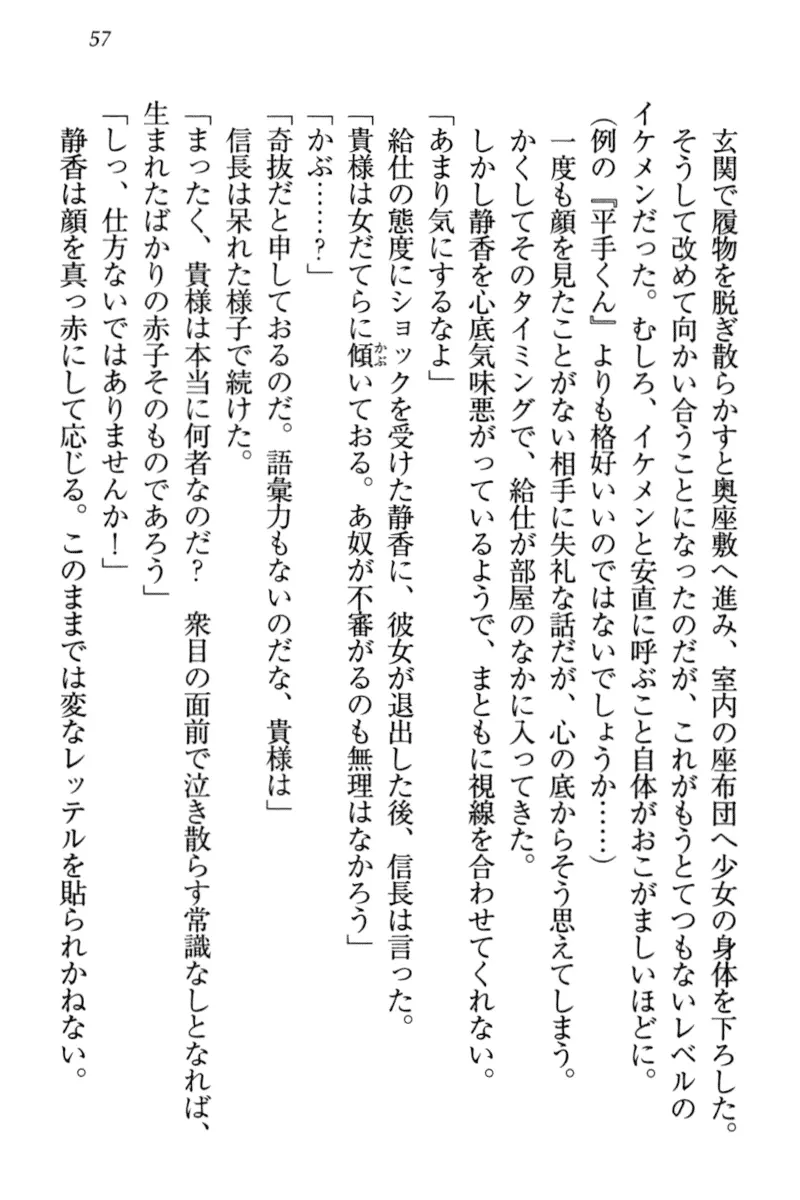 57
玄関で履物を脱ぎ散らかすと奥座敷へ進み、室内の座布団へ少女の身体を下ろした。
そうして改めて向かい合うことになったのだが、これがもうとてつもないレベルの
イケメンだった。むしろ、イケメンと安直に呼ぶこと自体がおこがましいほどに。
（例の『平手くん』よりも格好いいのではないでしょうか……）
一度も顔を見たことがない相手に失礼な話だが、心の底からそう思えてしまう。
かくしてそのタイミングで、給仕が部屋のなかに入ってきた。
しかし静香を心底気味悪がっているようで、まともに視線を合わせてくれない。
「あまり気にするなよ」
給仕の態度にショックを受けた静香に、彼女が退出した後、信長は言った。
「貴様は女だてらに傾いておる。あ奴が不審がるのも無理はなかろう」
かぶ
「かぶ……？」
「奇抜だと申しておるのだ。語彙力もないのだな、貴様は」
信長は呆れた様子で続けた。
「まったく、貴様は本当に何者なのだ？　衆目の面前で泣き散らす常識なしとなれば、
生まれたばかりの赤子そのものであろう」
「しっ、仕方ないではありませんか！」
静香は顔を真っ赤にして応じる。このままでは変なレッテルを貼られかねない。